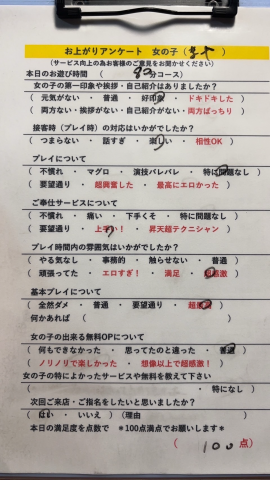 お上がりアンケート 女の子( )
(サービス向上の為お客様のご意見をお聞かせください)
本日のお遊び時間 ( 80分コース)
女の子の第一印象や挨拶・自己紹介はありましたか?
( 元気がない ・ 普通 ・ 好印象 ・ ドキドキした )
( 両方ない・挨拶がない・自己紹介がない・両方ばっちり )
接客時(プレイ時)の対応はいかがでしたか?
( つまらない ・ 話すぎ ・ 楽しい ・ 相性OK )
プレイについて
( 不慣れ ・ マグロ ・ 演技バレバレ ・ 特に問題なし )
( 要望通り ・ 超興奮した ・ 最高にエロかった )
ご奉仕サービスについて
( 不慣れ ・ 痛い ・ 下手くそ ・ 特に問題なし )
( 要望通り ・ 上手い! ・ 昇天超テクニシャン )
プレイ時間内の雰囲気はいかがでしたか?
( やる気なし ・ 事務的 ・ 触らせない ・ 普通 )
( 頑張ってた ・ エロすぎ! ・ 満足 ・ 超感激 )
基本プレイについて
( 全然ダメ ・ 普通 ・ 要望通り ・ 超感激 )
何かあれば ( )
女の子の出来る無料OPについて
( 何もできなかった ・ 思ってたのと違った ・ 普通 )
( ノリノリで楽しかった ・ 想像以上で超感激! )
女の子の特によかったサービスや無料を教えて下さい
( ・ 特になし )
次回ご来店・ご指名をしたいと思いましたか?
( はい ・ いいえ )(理由 )
本日の満足度を点数で *100点満点でお願いします*
( 100 点)